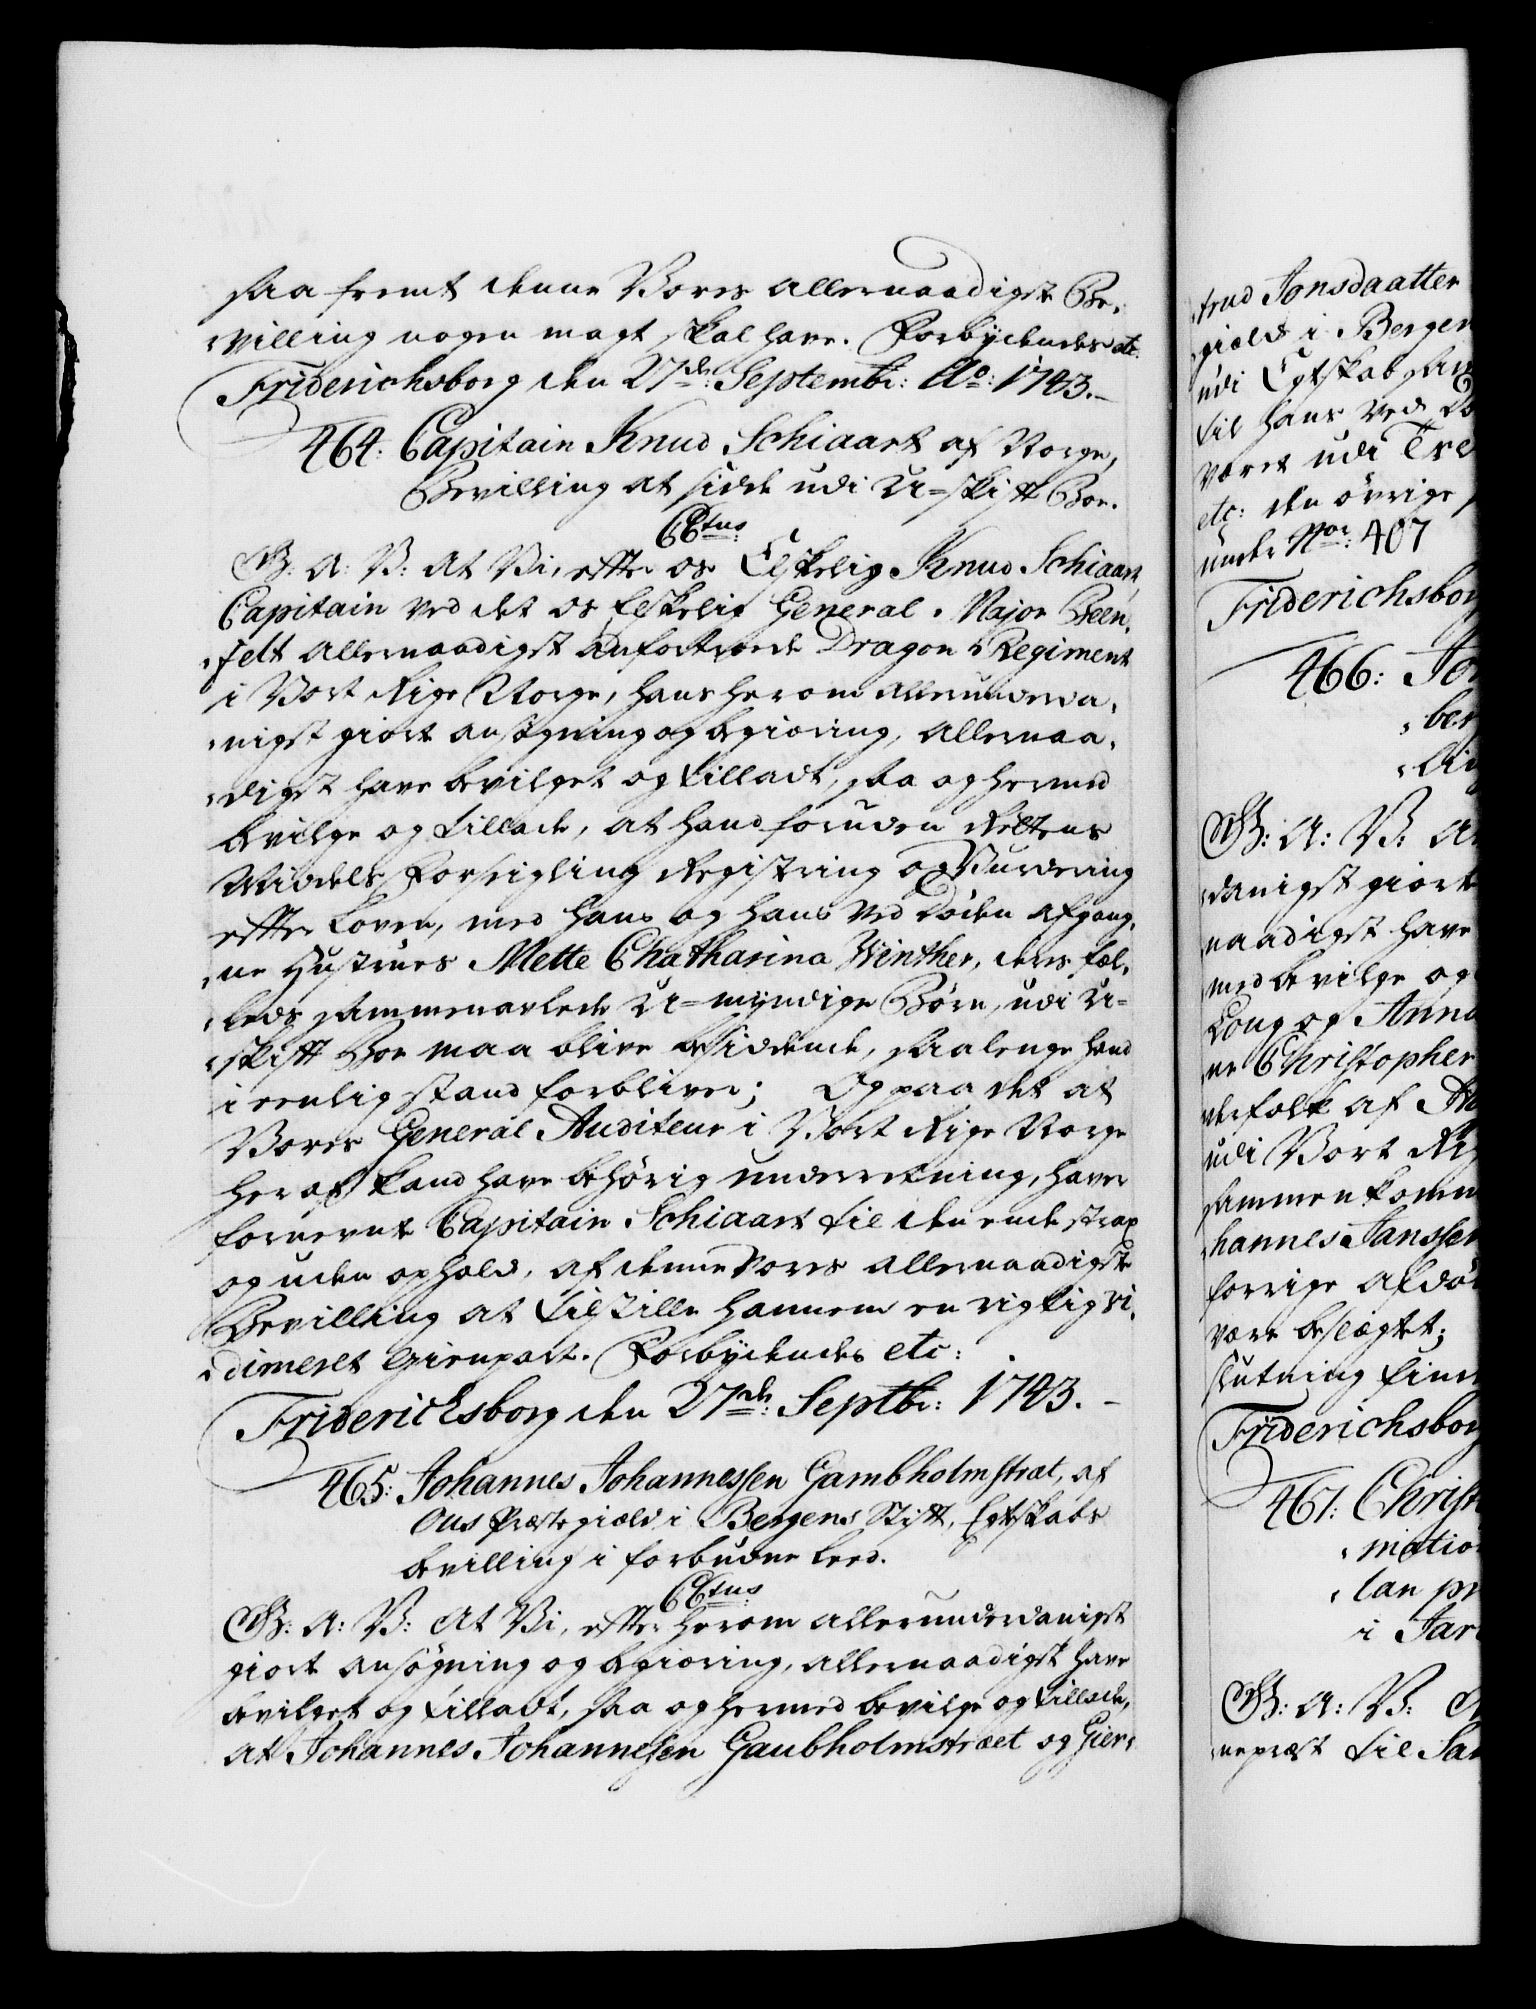 saa fremt denne Vores allernaadigste Be-
villing nogen magt skal have. Forbydendes etc.
Friderichsborg den 27de: Septembr: Ao: 1743.-
464: Capitain Knud Schiaart af Norge,
Bevilling at sidde udi U-skift Boe.
CCtus
G: A: V: At Vi, efter os Elskelig Knud Schiaart,
Capitain ved det os Elskelig General-Major Reen-
felt allernaadigst anfortroede Dragon Regiment
i Vort Rige Norge, hans herom allerunderda-
nigst giort ansøgning og begiæring, allernaa-
digst have bevilget og tilladt, saa og hermed
bevilge og tillade, at hand foruden Rettens
Middels Forseigling Registring og Vurdering
efter Loven, med hans og hans ved Døden afgang-
ne Hustrues Mette Chatharina Winther, deres fæl-
leds sammenavlede U-myndige Børn, udi U-
skift Boe maa blive besiddende, saalenge hand
i eenlig stand forbliver; Og paa det at
Vores General Auditeur i Vort Rige Norge
heraf kand have behørig underretning, haver
fornevnte Capitain Schiaart til den ende strax
og uden ophold, af denne Vores allernaadigste
Bevilling at tilstille hannem en rigtig vi-
dimeret Gienpart. Forbydendes etc:
Friderichsborg den 27de: Septbr: 1743.-
465: Johannes Johannessen Gambholmstræt, af
Ous Præstegield i Bergens Stift, Egtskabs
bevilling i forbudne Leed.
CCtus
G: A: V: At Vi, efter herom allerunderdanigst
giort ansøgning og begiæring, allernaadigst have
bevilget og tilladt, saa og hermed bevilge og tillade,
at Johannes Johannessen Gaubholmstræet og Gier-
trud Jonsdaatter
gields i Bergen
udi Egtskab
til hans ved
været udi
etc: den øvrige
under Nor: 407
Friderichsbor
466:
G: A: V:
danigst giort
naadigst have
med bevilge og
Loug og Anna
ne Christopher
af
udi Vort
sammen komm
hannes Janssen
forrige afdø
være beslægtet;
slutning find
Friderichsbor
467: Christ
matio
lan pr
i Jar
G: A: V:
nepræst til